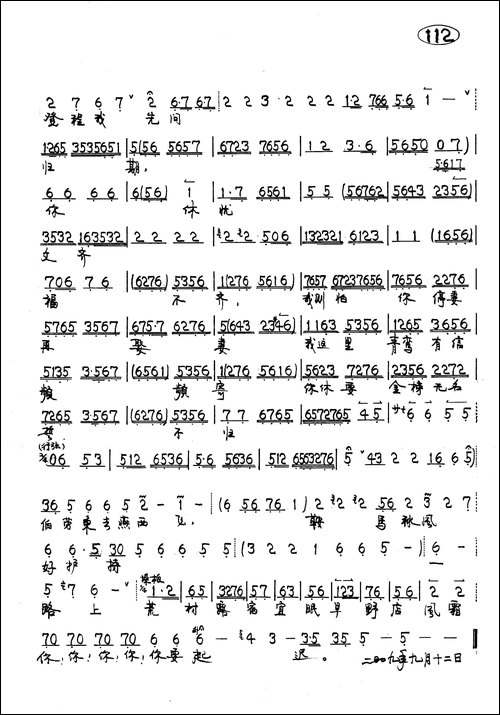 112
2 7 6 7 ˇ 2 6·7 67 | 2 2 3·2 2 2 1·2 766 5·6 1 — ˇ
登程我 先问
1265 3535651 | 5(56 5657 | 6723 7656 | 1 2 3·6 | 5650 07)
归 期。 5617
6 6 6 6 | 6(56) 1 | 1·7 6561 | 5 5 (56762 | 5643 2356)
休 忧
3532 163532 | 2 2 2 2 | 2 2 506 | 132321 6123 | 1 1 (1656)
文 齐
706 7 6 | (6276) 5356 | 1(1276 5616) | 7657 67237656 | 7656 2276
福 不 齐, 我则怕 你 停妻
5765 3567 | 675·7 6276 | 5(643 2346) | 1163 5356 | 1265 3656
再 娶 妻 我这里 青鸾有信
5135 3·567 | (6561) 5356 | 1(1276 5616) | 5623 7276 | 2356 2272
频 频寄 你休要 金榜无名
7265 3·567 | (6276) 5356 | 7 7 6765 | 6572765 45 | 6 6 5 5
誓 不 归
(行弦)
06 53 | 512 6536 | 5·6 5636 | 512 6563276 | 5 43 2 2 16 6 5)
36 5 6 6 5 2 — 1 — | (6 56 76 1) 2 2 2 56 2 3 2 7
伯劳东去燕西 飞。 鞍 马秋风
6 6·5 30 5 6 6 5 5 | (3 2 2 1 6 6 5 —) 6 —
好护 持
5 7 6 — ˇ 1·2 | 65 | 3276 | 57 | 63 | 56 | 123 | 76 | 56 | 2 2
路 上 荒村露宿宜眠早野店风霜
70 70 70 70 6 6 6 — 4 3 — 3·5 35 5 — 5 —
你!你!你!你!你要 起 迟。 二00九年九月十二日